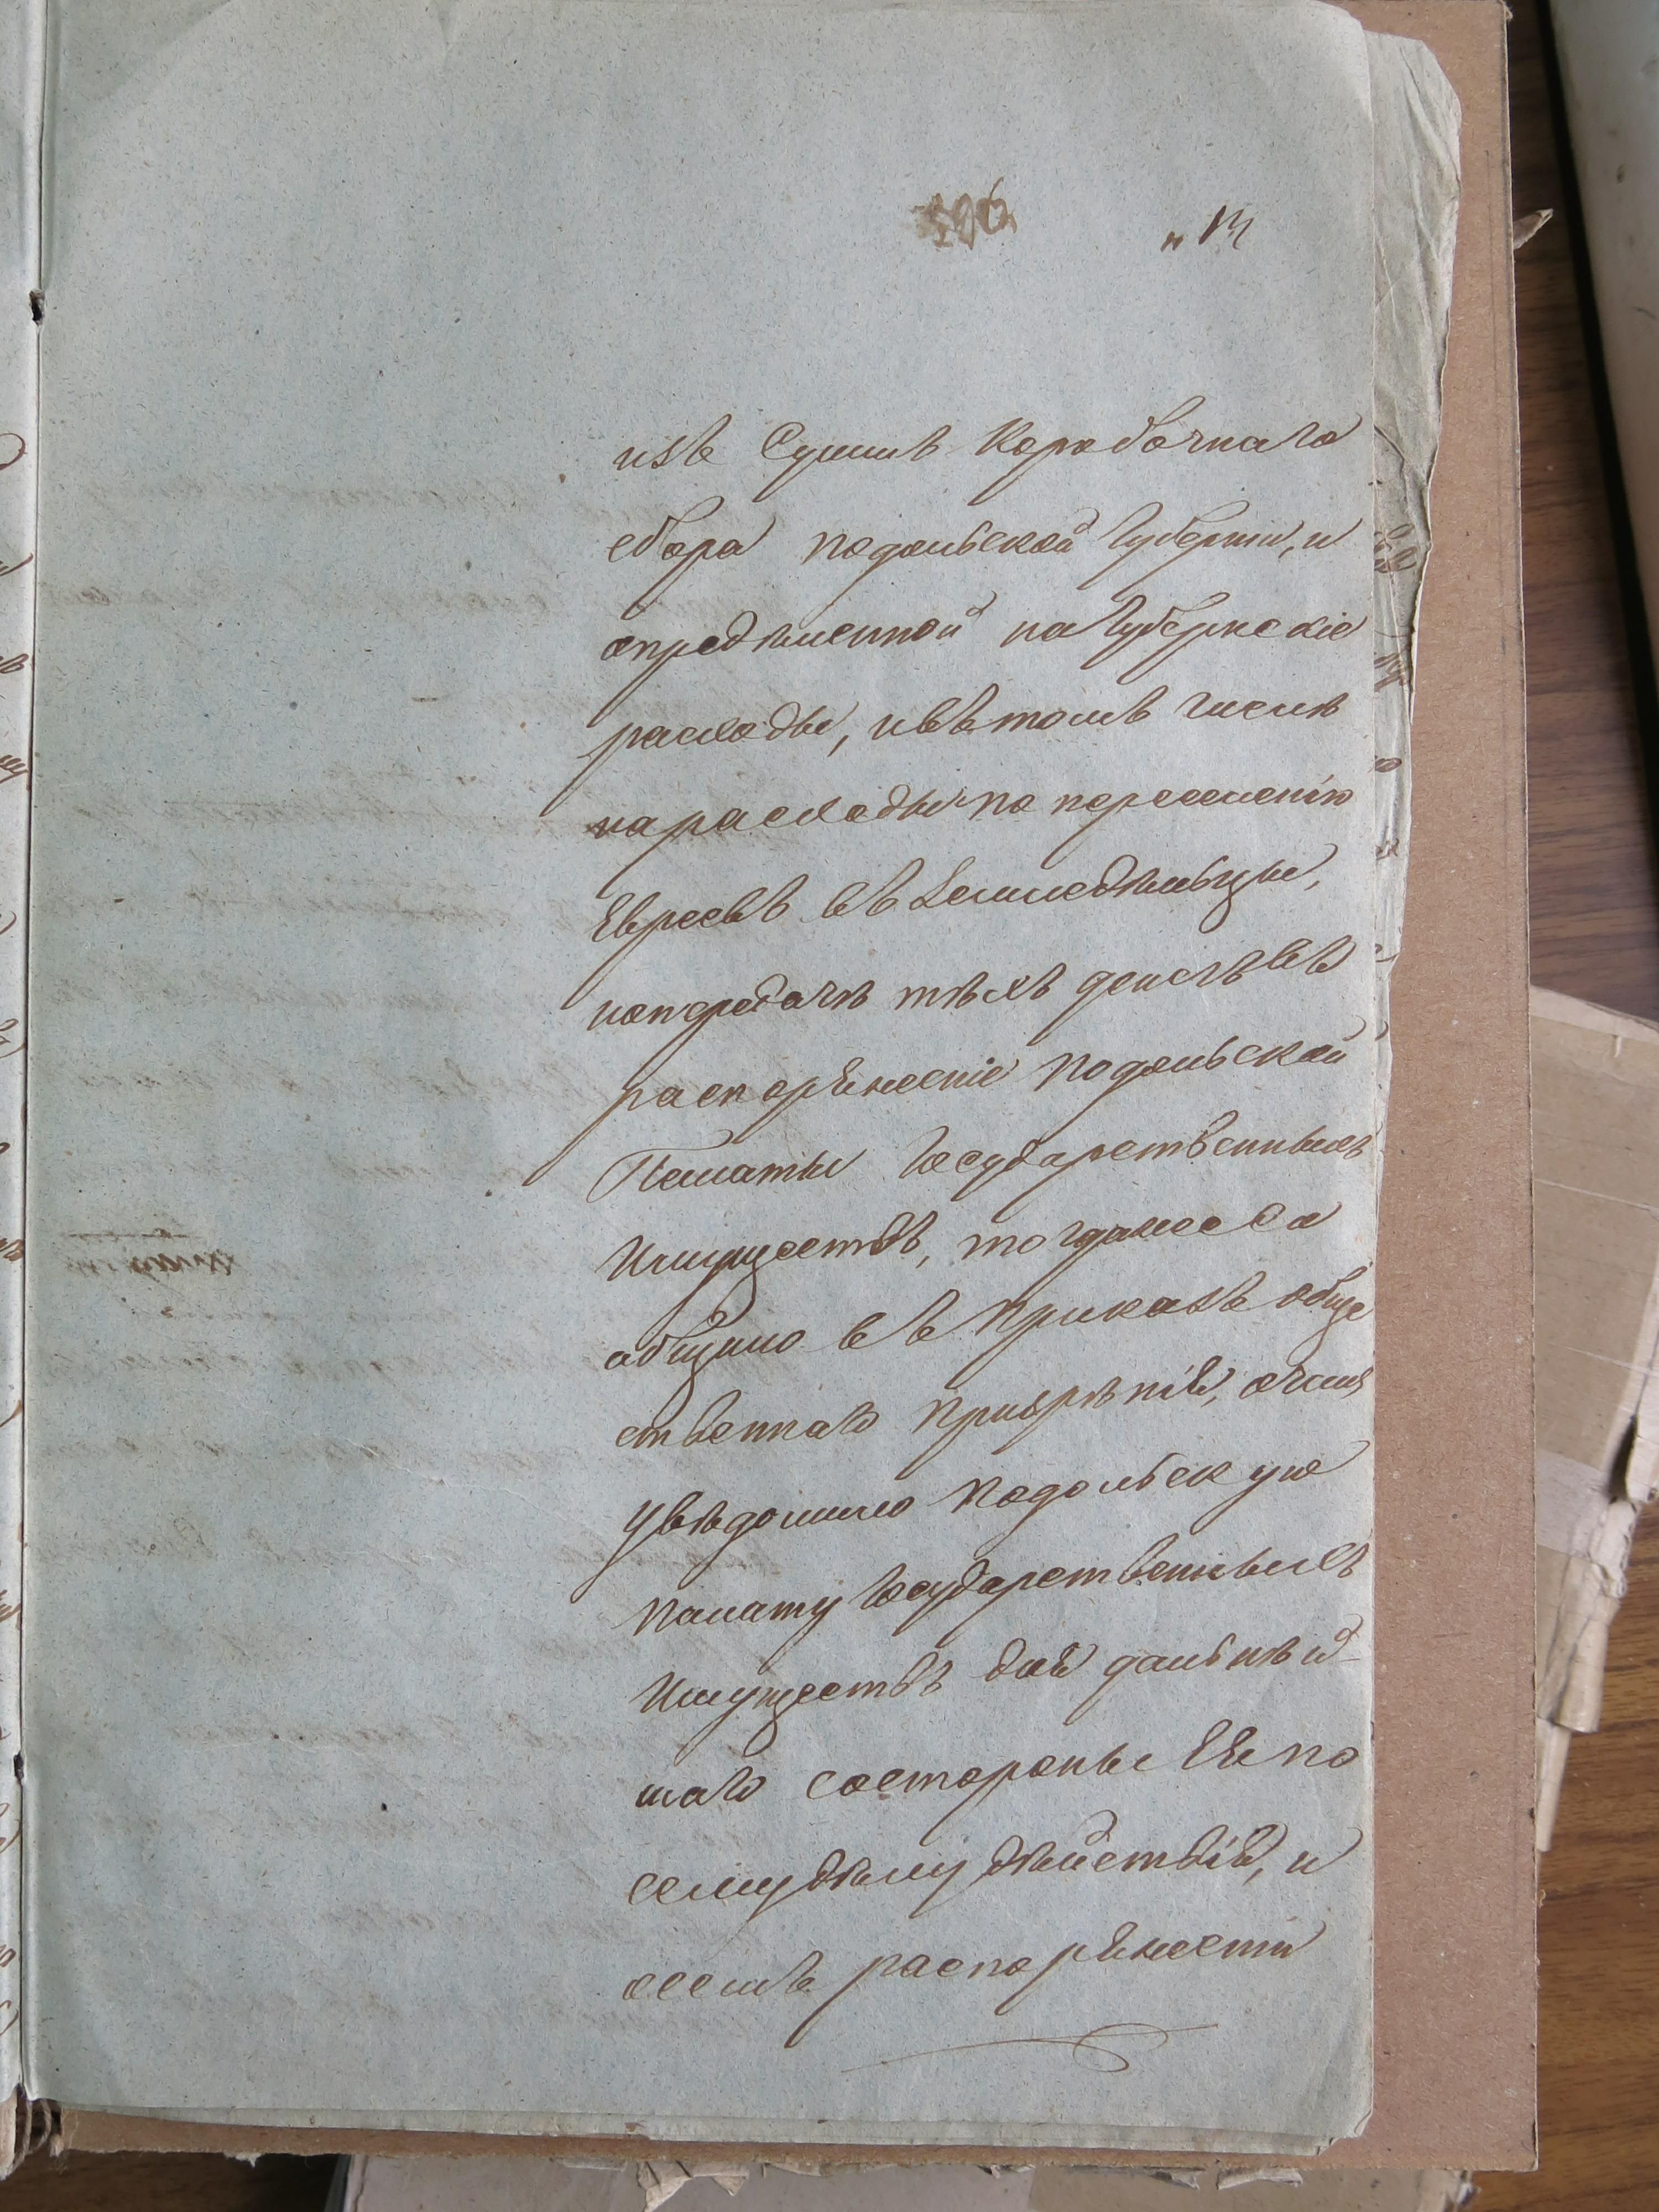 изъ Суммъ Коробочнаго
сбора Подольской Губерніи, и
опредѣленной на Губернскіе
расходы, и въ томъ числѣ
на расходы по переселенію
Евреевъ въ Земледѣльцы,
и о передачѣ тѣхъ денегъ въ
распоряженіе Подольской
Палаты Государственныхъ
Имуществъ, тогда же со
общено въ Приказъ обще
ственнаго Призрѣнія, о чемъ
увѣдомило Подольскую
Палату Государственныхъ
Имуществъ для дальнѣй-
шаго со стороны Ея по
сему дѣлу дѣйствія, и
о семъ распоряженіи